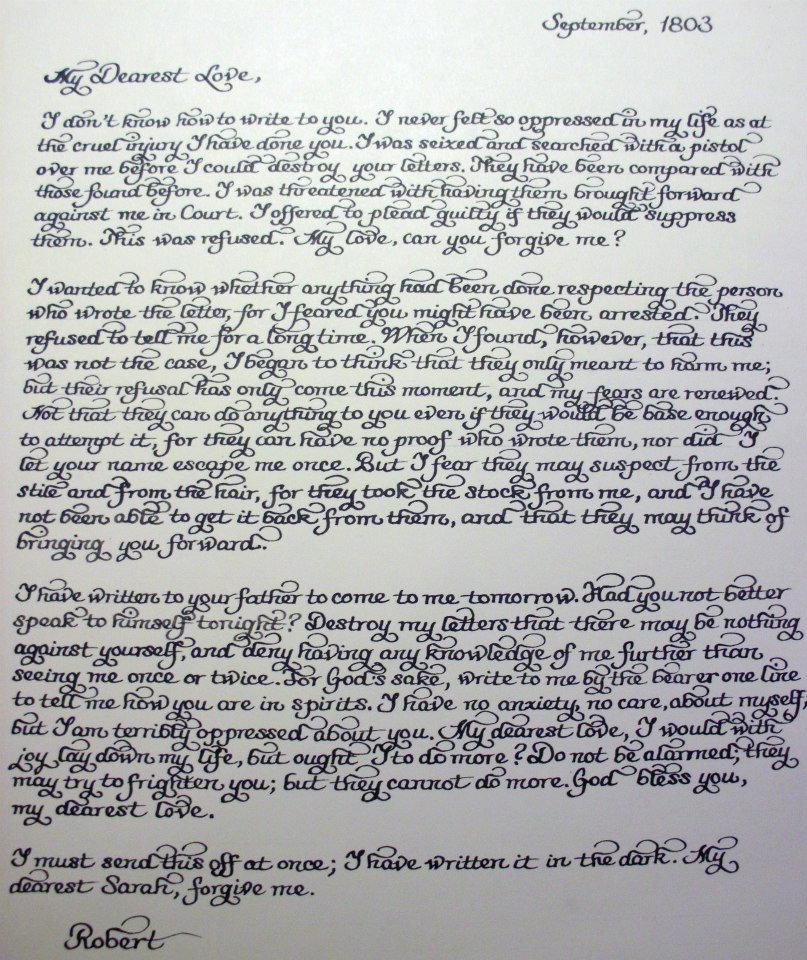 September, 1803
My Dearest Love,
I don't know how to write to you. I never felt so oppressed in my life as at
the cruel injury I have done you. I was seixed and searched with a pistol
over me before I could destroy your letters. They have been compared with
those found before. I was threatened with having them brought forward
against me in Court. I offered to plead guilty if they would suppress
them. This was refused. My love, can you forgive me?
I wanted to know whether anything had been done respecting the person
who wrote the letter, for I feared you might have been arrested. They
refused to tell me for a long time. When I found, however, that this
was not the case, I began to think that they only meant to harm me;
but their refusal has only come this moment, and my fears are renewed.
Not that they can do anything to you even if they would be base enough
to attempt it, for they can have no proof who wrote them, nor did I
let your name escape me once. But I fear they may suspect from the
stile and from the hair, for they took the stock from me, and I have
not been able to get it back from them, and that they may think of
bringing you forward.
I have written to your father to come to me tomorrow. Had you not better
speak to himself tonight? Destroy my letters that there may be nothing
against yourself, and deny having any knowledge of me further than
seeing me once or twice. For God's sake, write to me by the bearer one line
to tell me how you are in spirits. I have no anxiety, no care, about myself,
but I am terribly oppressed about you. My dearest love, I would with
joy lay down my life, but ought I to do more? Do not be alarmed; they
may try to frighten you; but they cannot do more. God bless you,
my dearest love.
I must send this off at once; I have written it in the dark. My
dearest Sarah, forgive me.
Robert